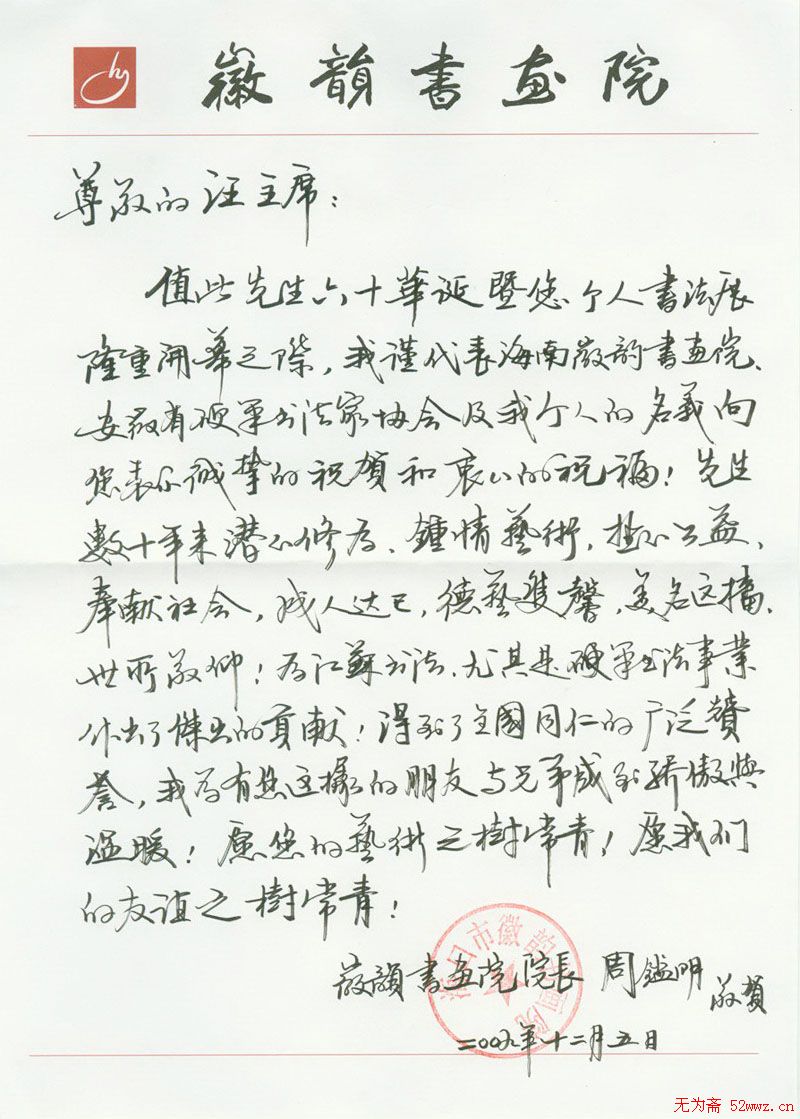 hy
徽韻書画院
尊敬的汪主席：
值此先生六十華诞暨您个人書法展
隆重開幕之際，我谨代表海南徽韵書画院、
安徽省硬笔书法家协会及我个人的名義向
您表示诚挚的祝賀和衷心的祝福！先生
數十年来潜心修为、鍾情藝術，热心公益、
奉献社会，成人达己，德藝雙馨，美名远播、
世所敬仰！为江蘇书法、尤其是硬笔书法事業
作出了傑出的貢献！得到了全國同仁的广泛贊
誉，我为有您这樣的朋友与兄弟感到骄傲與
温暖！愿您的藝術之樹常青！愿我们
的友谊之樹常青！
徽韻書画院院長 周 明 敬賀
二〇〇九年十二月五日
海口市徽韵书画院
无为斋 52wwz.cn